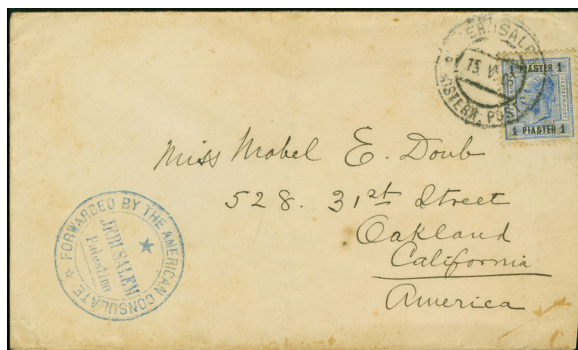 JERUSALEM
15 VI 05
OSTERR. POST
1 PIASTER 1
1 PIASTER 1
Miss Mabel E. Doub
528. 31st Street
Oakland
California
America
FORWARDED BY THE AMERICAN CONSULATE
JERUSALEM
Palestine